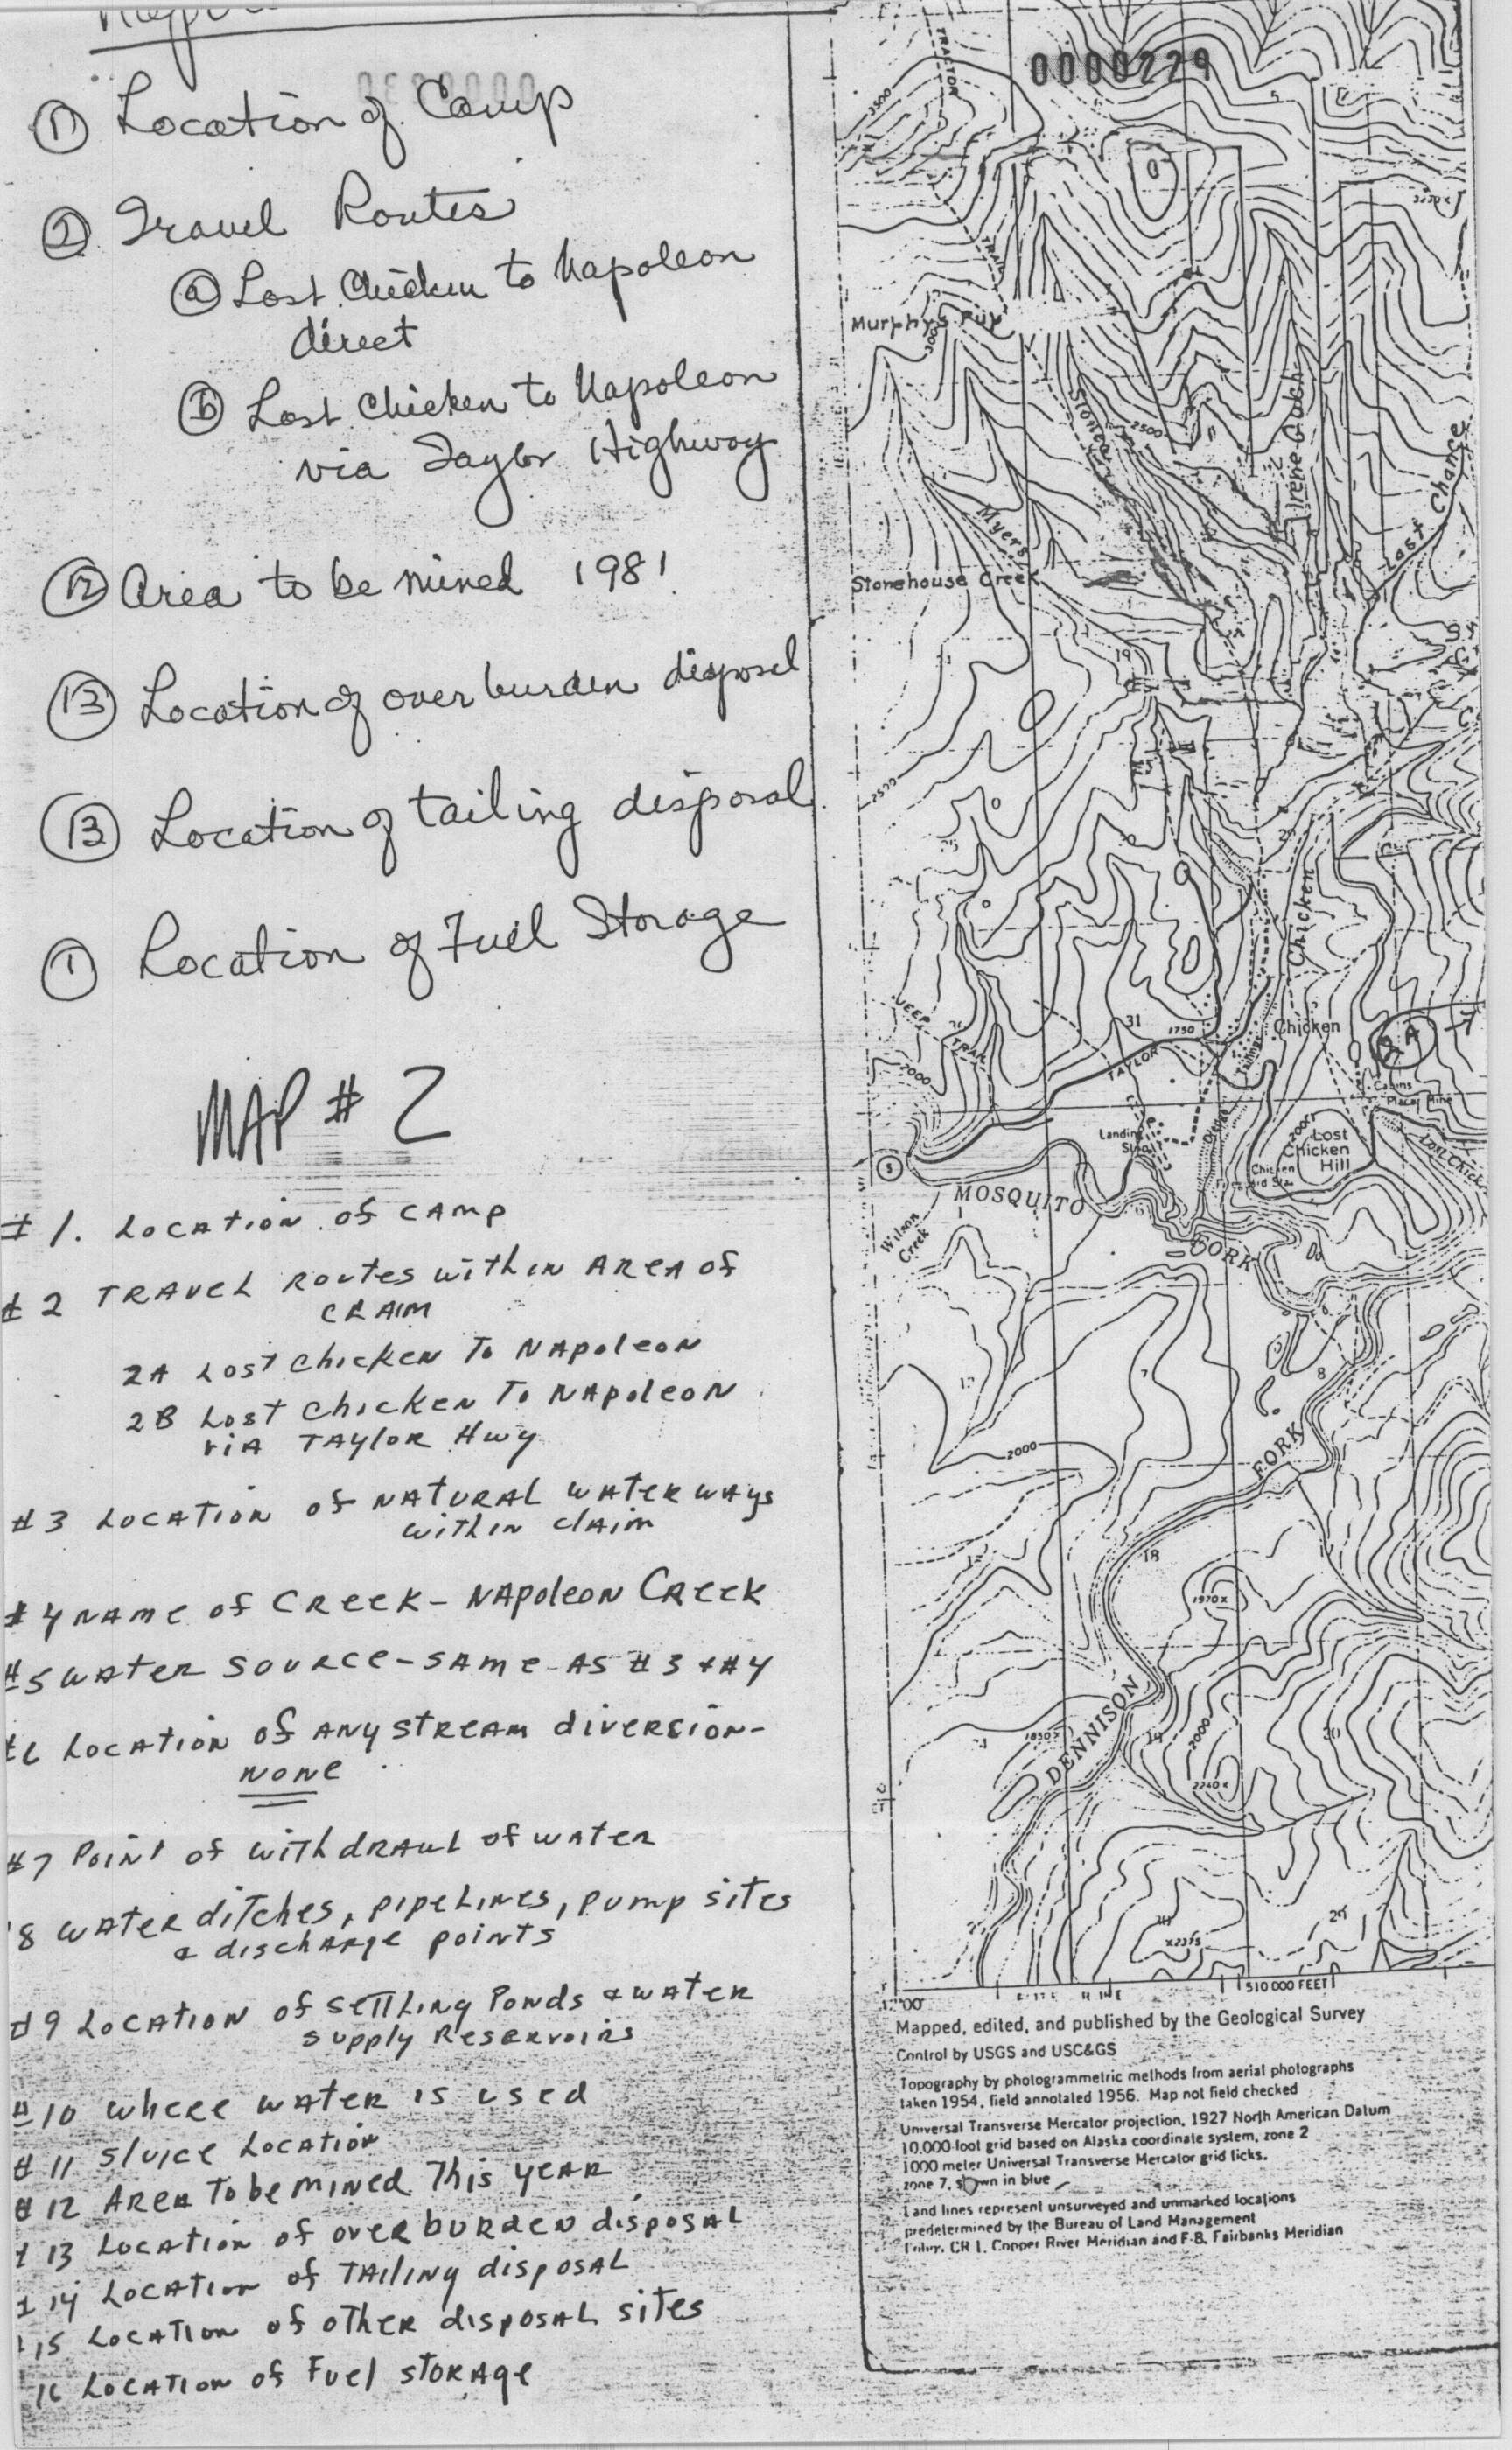 ① Location of Camp
② Travel Routes
ⓐ Lost Chicken to Napoleon
direct
ⓑ Lost Chicken to Napoleon
via Taylor Highway
⑫ Area to be mined 1981
⑬ Location of over burden disposal
⑬ Location of tailing disposal
① Location of Fuel Storage
MAP # 2
# 1. Location of camp
# 2 Travel Routes within Area of
claim
2A Lost Chicken To Napoleon
2B Lost Chicken To Napoleon
via Taylor Hwy
# 3 Location of Natural waterways
within claim
# 4 Name of Creek - Napoleon Creek
# 5 water source - same as #3 + #4
#6 Location of any stream diversion -
none
#7 Point of withdrawl of water
8 water ditches, pipelines, pump sites
& discharge points
#9 Location of settling Ponds & water
supply Reservoirs
#10 where water is used
# 11 sluice Location
# 12 Area To be mined This year
# 13 Location of over burden disposal
# 14 Location of Tailing disposal
15 Location of other disposal sites
16 Location of Fuel storage
0000229
TRACTOR
3500
TRAIL
Murphys
Stonehouse Creek
Myers
2500
Irene Gulch
Last Chance
19
2500
29
Chicken
JEEP
TRAIL
2000
31
1750
TAYLOR
Chicken
2A
Cabins
Placer Mine
Landing
Strip
Lost
Chicken
Hill
2000
Lost Chick
Chicken
MOSQUITO
FORK
Wilson
Creek
7
8
2000
FORK
18
1970x
DENNISON
1850x
2000
2240x
x2315
510 000 FEET
Mapped, edited, and published by the Geological Survey
Control by USGS and USC&GS
Topography by photogrammetric methods from aerial photographs
taken 1954, field annotated 1956. Map not field checked
Universal Transverse Mercator projection, 1927 North American Datum
10,000-foot grid based on Alaska coordinate system, zone 2
1000 meter Universal Transverse Mercator grid ticks,
zone 7, shown in blue
Land lines represent unsurveyed and unmarked locations
predetermined by the Bureau of Land Management
CR 1, Copper River Meridian and F-8, Fairbanks Meridian